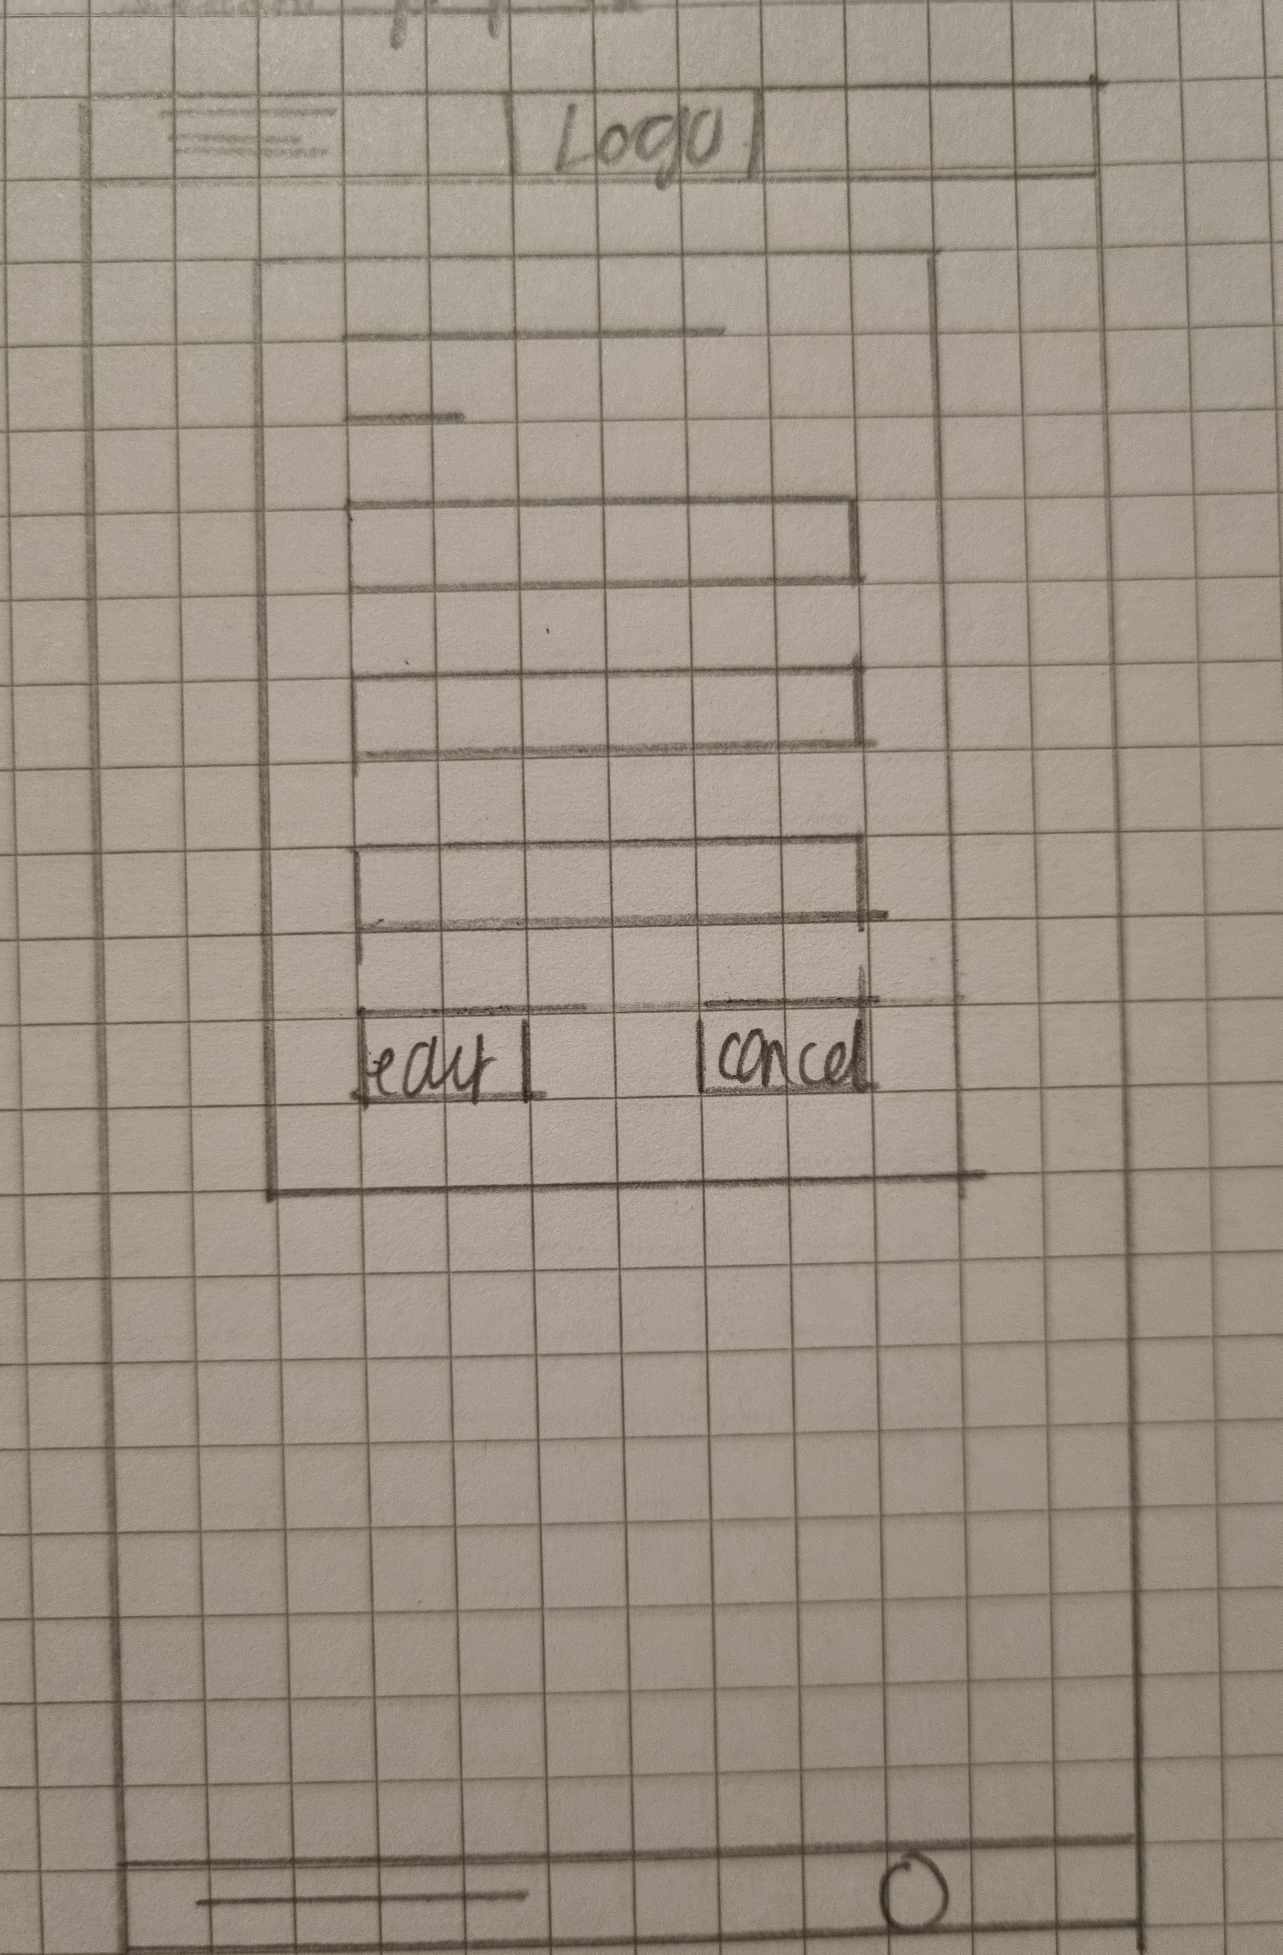 Logo
edit
cancel